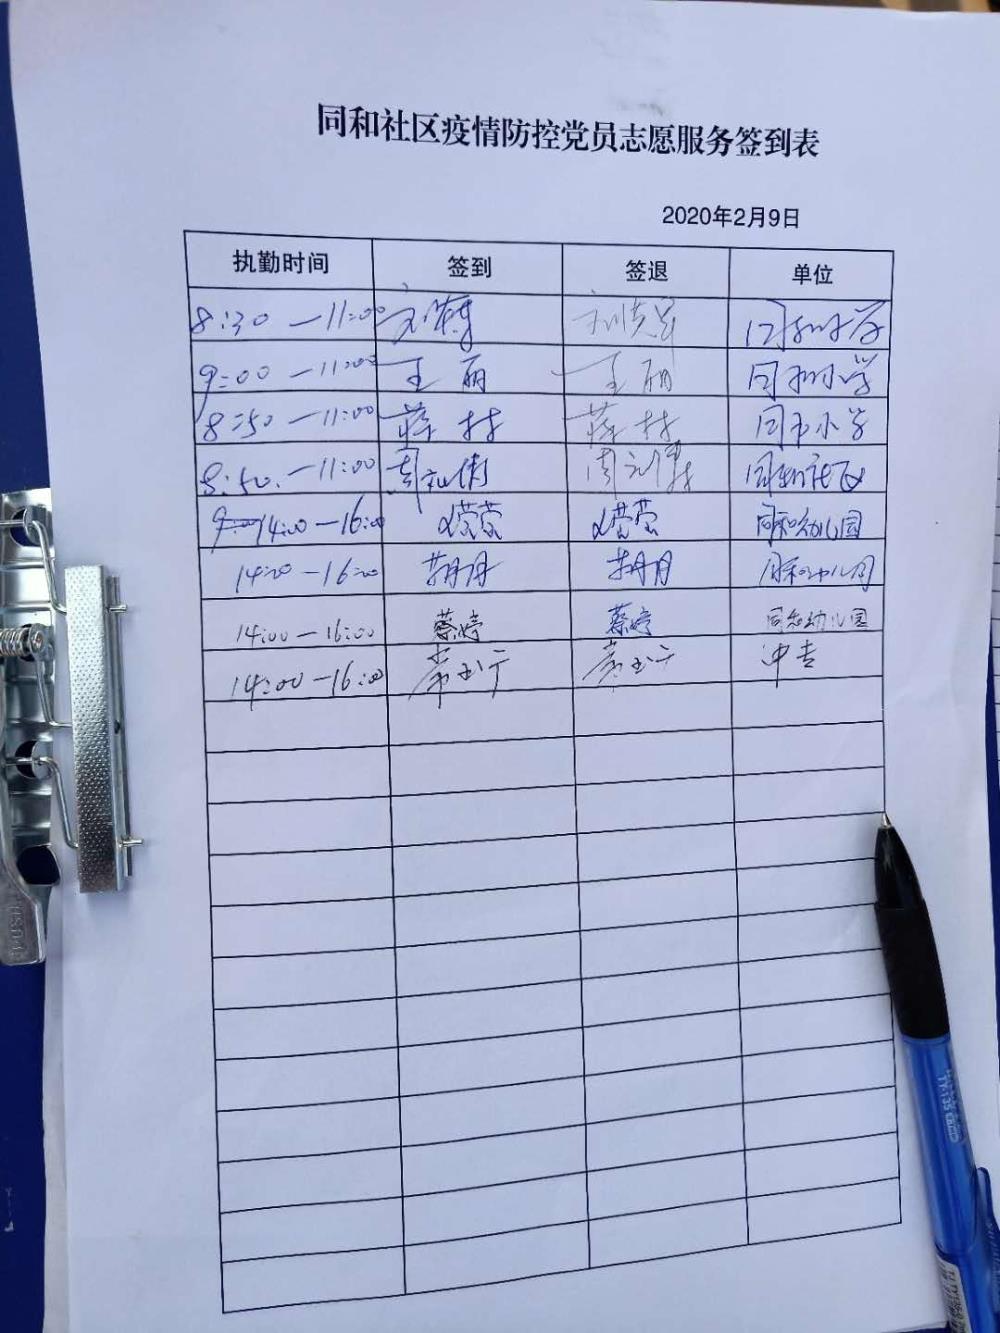 同和社区疫情防控党员志愿服务签到表
2020年2月9日
执勤时间 签到 签退 单位
8:30 —11:00 同和小学
9:00 —11:00 王丽 王丽 同和小学
8:50 —11:00 蒋材 蒋材 同和小学
8:50. —11:00 周 周 同和社区
14:00 —16:00 莹莹 莹莹 同和幼儿园
14:00 —16:00 胡月 胡月 同和幼儿园
14:00 —16:00 蔡婷 蔡婷 同和幼儿园
14:00 —16:00